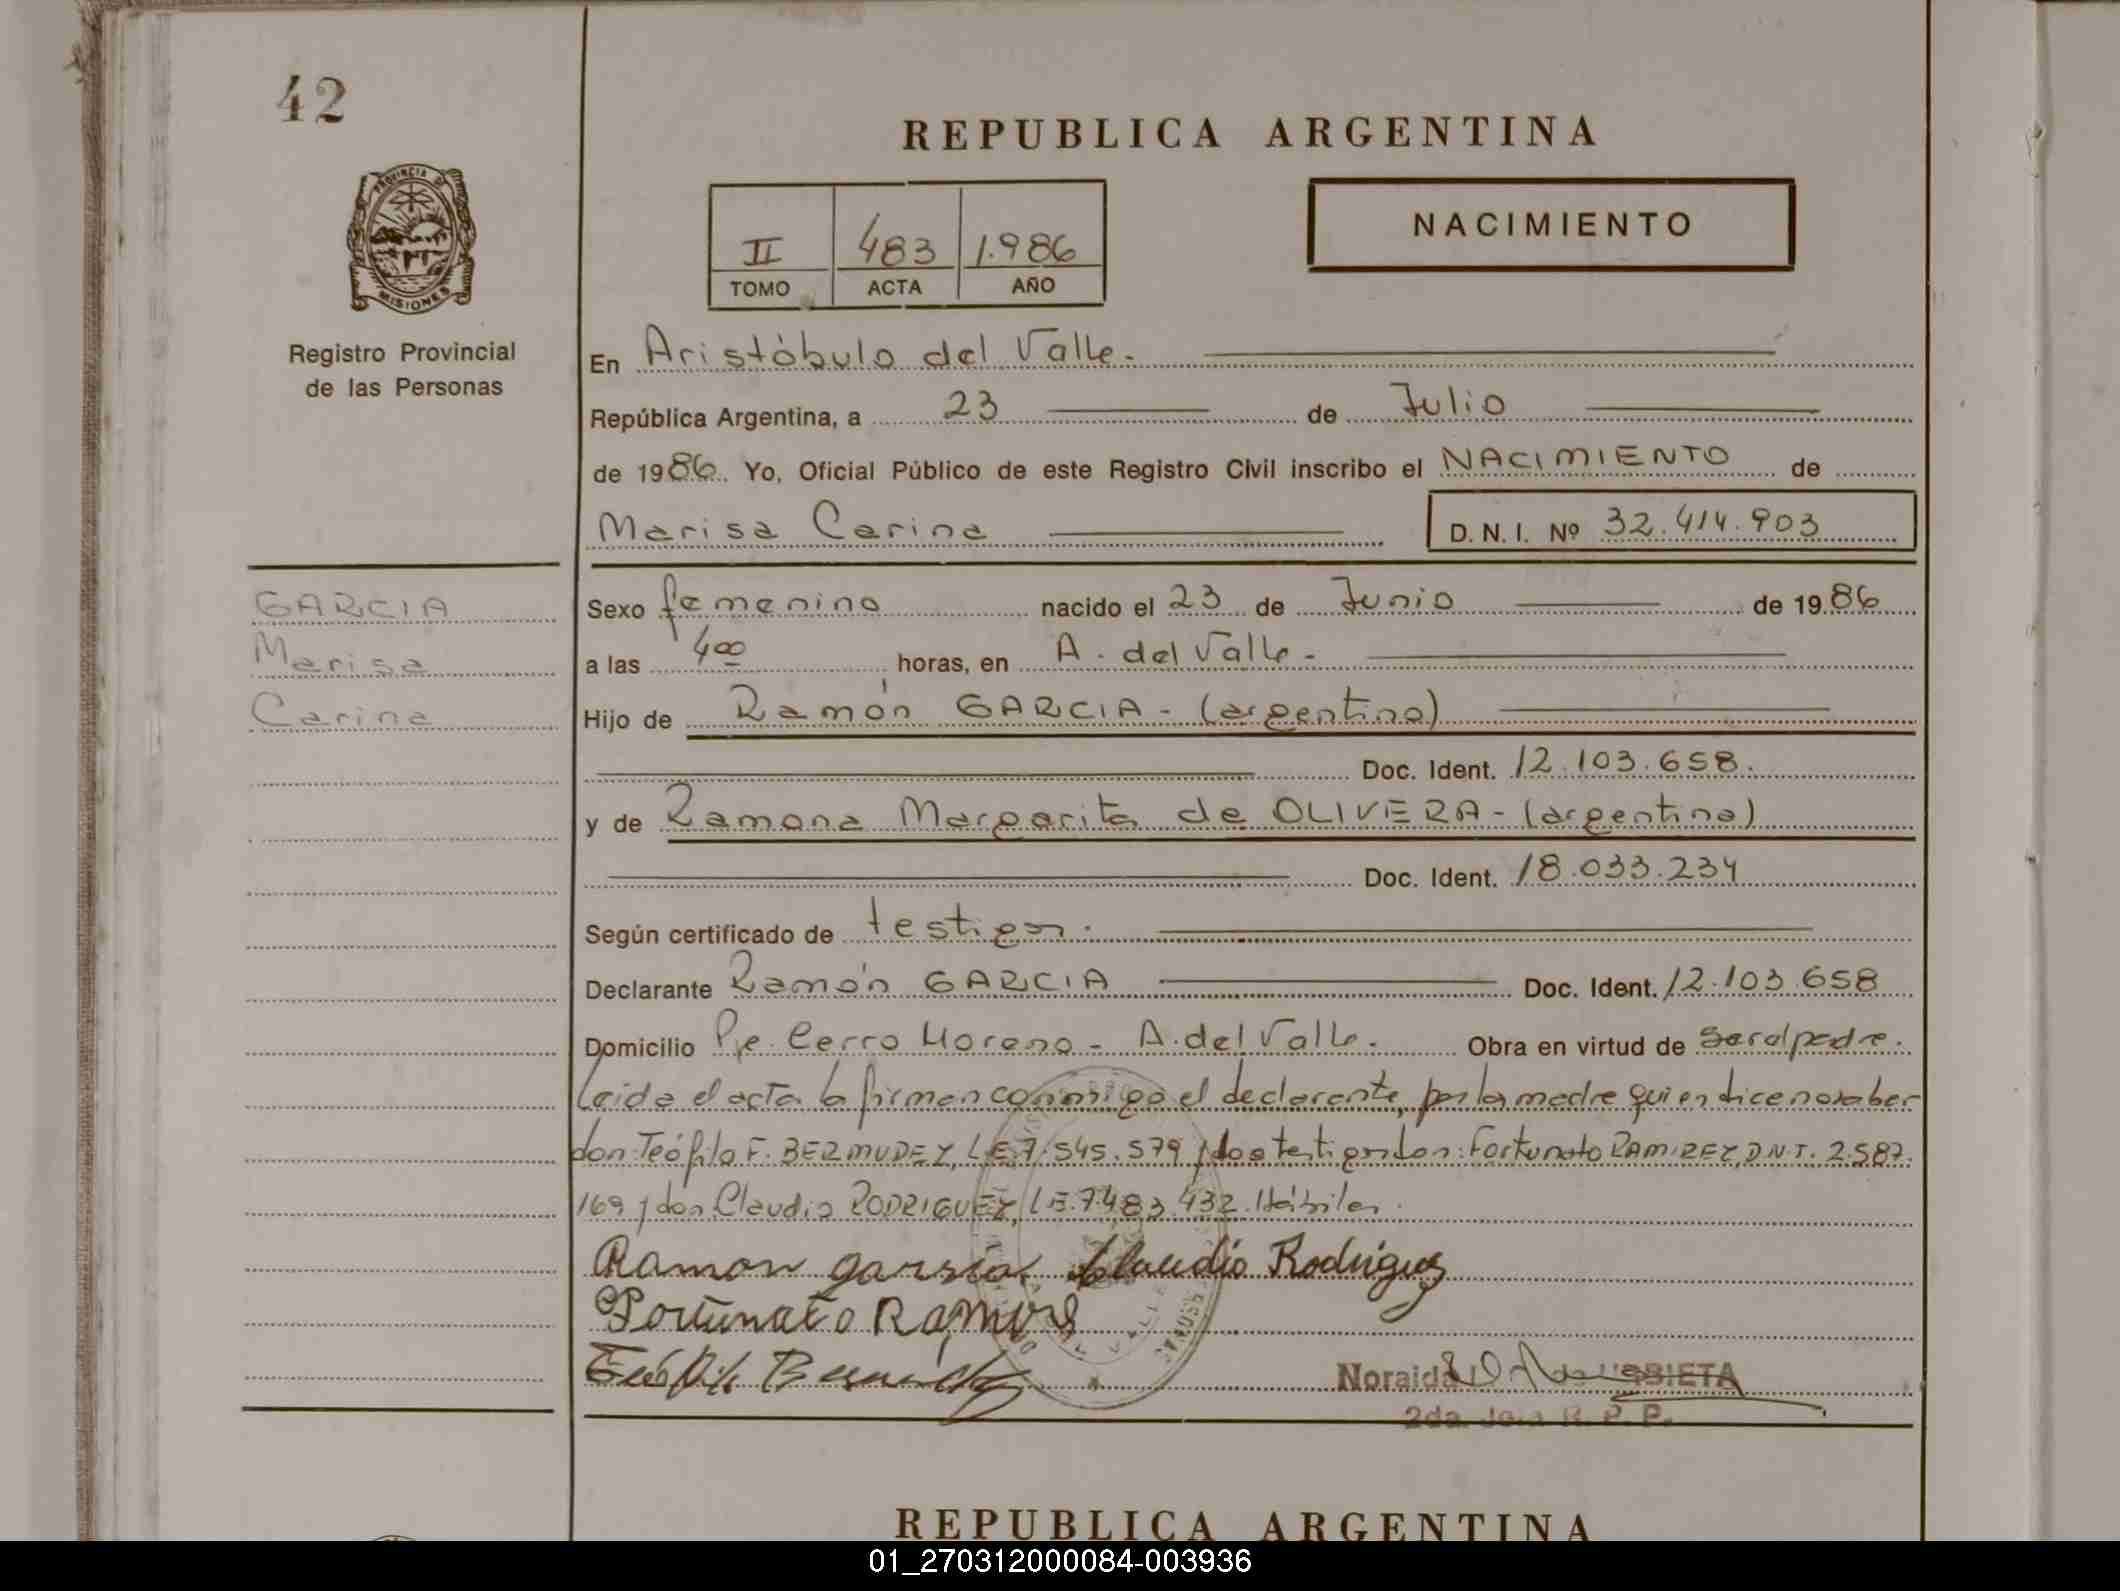 42
REPUBLICA ARGENTINA
PROVINCIA DE
MISIONES
II 483 1.986
TOMO ACTA AÑO
NACIMIENTO
Registro Provincial
de las Personas
En Aristóbulo del Valle.-
República Argentina, a 23 de Julio
de 1986. Yo, Oficial Público de este Registro Civil inscribo el NACIMIENTO de
Marisa Carina D. N. I. Nº 32.414.903
GARCIA
Marisa
Carina
Sexo femenino nacido el 23 de Junio de 1986
a las 4 00 horas, en A. del Valle.-
Hijo de Ramón GARCIA - (argentino)
Doc. Ident. 12.103.658.
y de Ramona Margarita de OLIVERA - (argentina)
Doc. Ident. 18.033.234
Según certificado de testigos.
Declarante Ramón GARCIA Doc. Ident. 12.103.658
Domicilio Pje. Cerro Moreno - A. del Valle. Obra en virtud de ser el padre.
Leida el acta la firman conmigo el declarante, por la madre quien dice no saber
don: Teófilo F. BERMUDEZ, L.E. 7.545.579 y los testigos don: Fortunato RAMIREZ, D.N.I. 2.587.
169 y don Claudio RODRIGUEZ, L.E. 7.483.432. Hábiles.
Ramon garsia. Claudio Rodriguez
Fortunato
Teófilo Bermudez
Noraida
2da. Jefa R. P. P.
REPUBLICA ARGENTINA
01_270312000084-003936